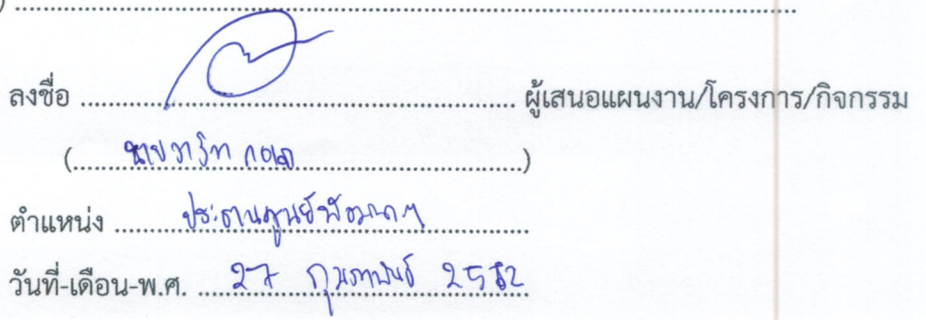 ) ........................................................................
ลงชื่อ ........................................ ผู้เสนอแผนงาน/โครงการ/กิจกรรม
(....นาย..................)
ตำแหน่ง ....ประธานศูนย์พัฒนาฯ....
วันที่-เดือน-พ.ศ. ....27 กุมภาพันธ์ 2562